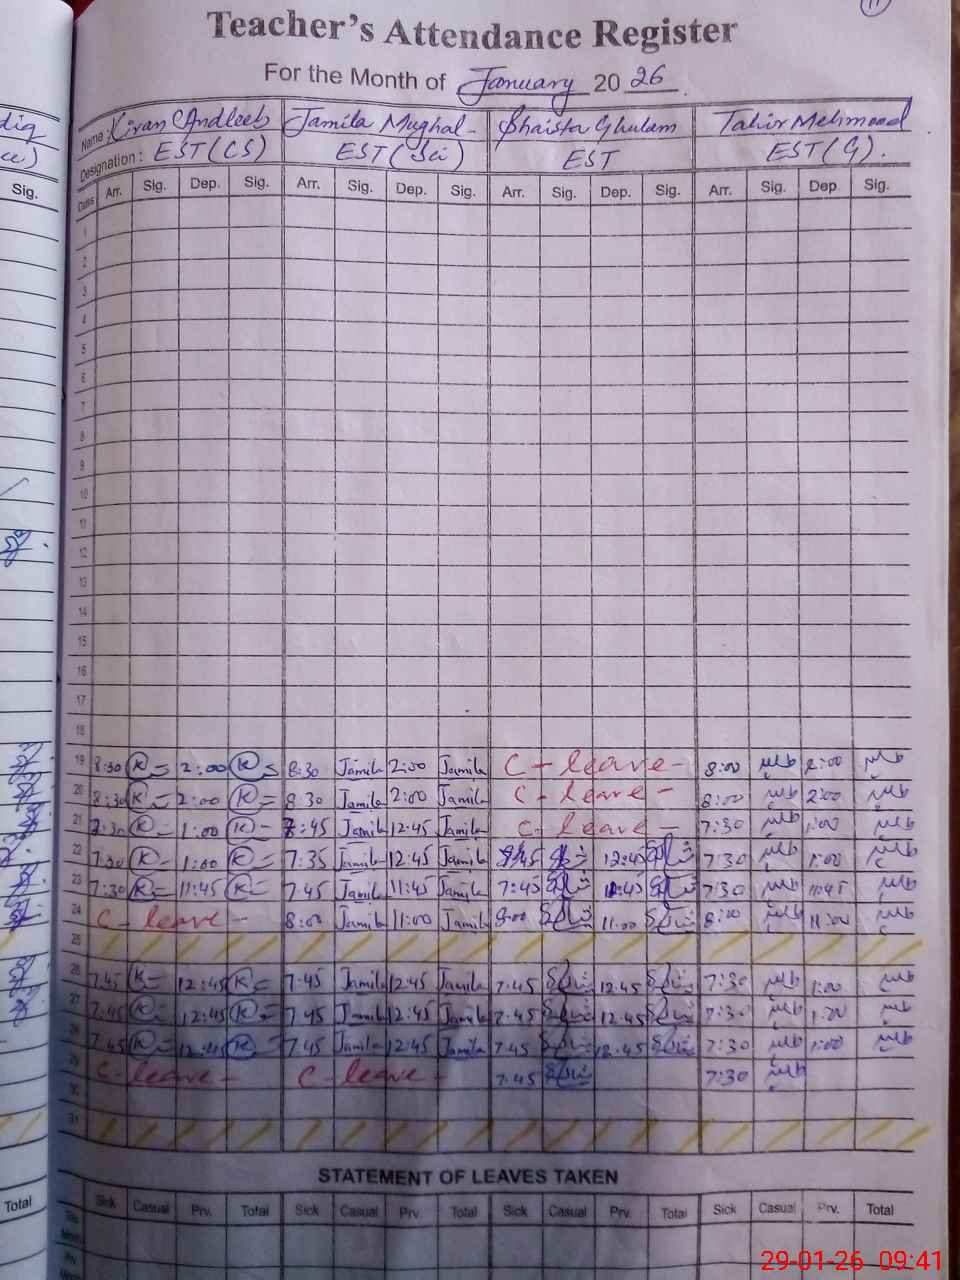 11
Teacher's Attendance Register
For the Month of January 2026.
Name: Kiran Andleeb Jamila Mughal Shaista Ghulam Tahir Mehmood
Designation: EST(CS) EST(Sci) EST EST(G).
Sig. Dates Arr. Sig. Dep. Sig. Arr. Sig. Dep. Sig. Arr. Sig. Dep. Sig. Arr. Sig. Dep. Sig.
1
2
3
4
5
6
7
8
9
10
11
12
13
14
15
16
17
18
19 8:30 K 2:00 K 8:30 Jamila 2:00 Jamila C-leave- 8:00 2:00
20 8:30 K 2:00 K 8:30 Jamila 2:00 Jamila C-leave- 8:00 2:00
21 7:30 K 1:00 K 7:45 Jamila 12:45 Jamila C-leave- 7:30 1:00
22 7:30 K 1:00 K 7:35 Jamila 12:45 Jamila 12:45 7:30 1:00
23 7:30 K 11:45 K 7.45 Jamila 11:45 Jamila 7:45 11:45 7:30 11:45
24 C-leave- 8:00 Jamila 11:00 Jamila 8:00 11:00 8:00 11:00
25
26 7.45 K 12:45 K 7:45 Jamila 12:45 Jamila 7.45 12.45 7:30 1:00
27 7:45 K 12:45 K 7.45 Jamila 12:45 Jamila 7.45 12.45 7:30 1:00
28 7.45 K 12:45 K 7.45 Jamila 12:45 Jamila 7.45 12.45 7:30 1:00
29 C-leave- C-leave- 7.45 7:30
30
31
STATEMENT OF LEAVES TAKEN
Total Sick Casual Prv. Total Sick Casual Prv Total Sick Casual Prv. Total Sick Casual Prv. Total
29-01-26 09:41